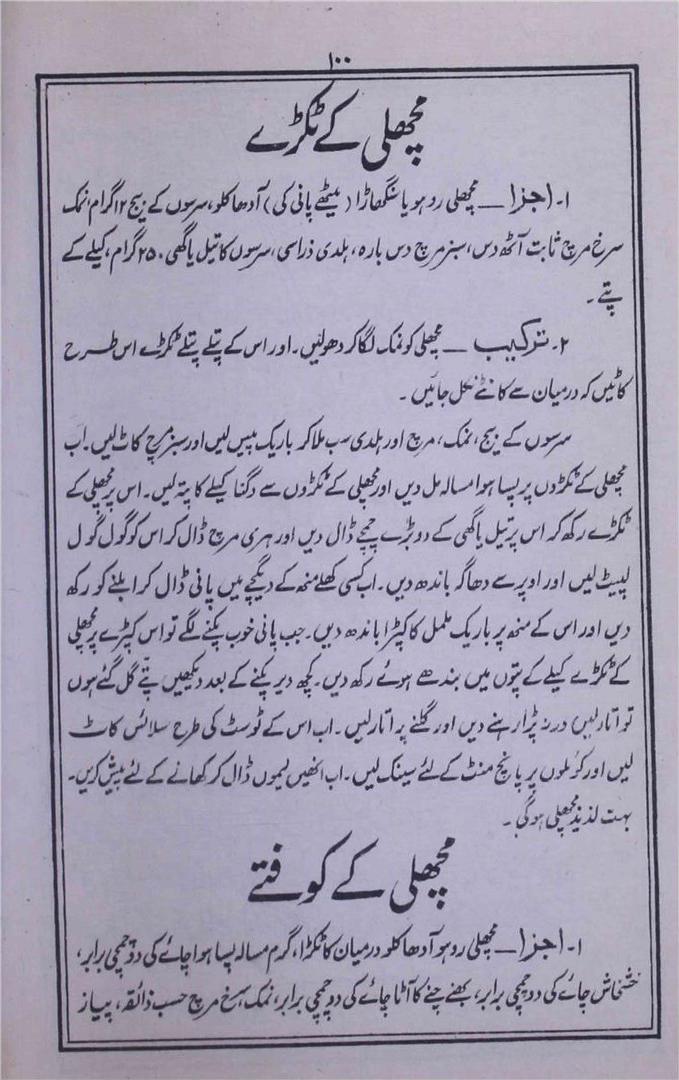 ۱۰۰
مچھلی کے ٹکڑے
۱۔ اجزا ــ مچھلی روہو یا سنگھاڑا (میٹھے پانی کی) آدھا کلو، سرسوں کے بیج ۱۲ گرام، نمک
سرخ مرچ ثابت آٹھ دس، سبز مرچ دس بارہ، ہلدی ذراسی، سرسوں کا تیل یا گھی ۲۵۰ گرام، کیلے کے
پتے۔
۲۔ ترکیب ــ مچھلی کو نمک لگا کر دھولیں۔ اور اس کے پتلے پتلے ٹکڑے اس طرح
کاٹیں کہ درمیان سے کانٹے نکل جائیں۔
سرسوں کے بیج، نمک، مرچ اور ہلدی سب ملا کر باریک پیس لیں اور سبز مرچ کاٹ لیں۔ اب
مچھلی کے ٹکڑوں پر پسا ہوا مسالہ مل دیں اور مچھلی کے ٹکڑوں سے دگنا کیلے کا پتہ لیں۔ اس پر مچھلی کے
ٹکڑے رکھ کر اس پر تیل یا گھی کے دو بڑے چمچے ڈال دیں اور ہری مرچ ڈال کر اس کو گول گول
لپیٹ لیں اور اوپر سے دھاگہ باندھ دیں۔ اب کسی کھلے منھ کے دیگچے میں پانی ڈال کر ابلنے کو رکھ
دیں اور اس کے منھ پر باریک ململ کا کپڑا باندھ دیں۔ جب پانی خوب پکنے لگے تو اس کپڑے پر مچھلی
کے ٹکڑے کیلے کے پتوں میں بندھے ہوئے رکھ دیں۔ کچھ دیر پکنے کے بعد دیکھیں پتے گل گئے ہوں
تو اتار لیں ورنہ پڑا رہنے دیں اور گلنے پر اتار لیں۔ اب اس کے ٹوسٹ کی طرح سلائس کاٹ
لیں اور کوئلوں پر پانچ منٹ کے لئے سینک لیں۔ اب انھیں لیموں ڈال کر کھانے کے لئے پیش کریں۔
بہت لذیذ مچھلی ہوگی۔
مچھلی کے کوفتے
۱۔ اجزا ــ مچھلی روہو آدھا کلو درمیان کا ٹکڑا، گرم مسالہ پسا ہوا چائے کی دو چمچی برابر،
خشخاش چائے کی دو چمچی برابر، بھنے چنے کا آٹا چائے کی دو چمچی برابر، نمک سرخ مرچ حسب ذائقہ، پیاز